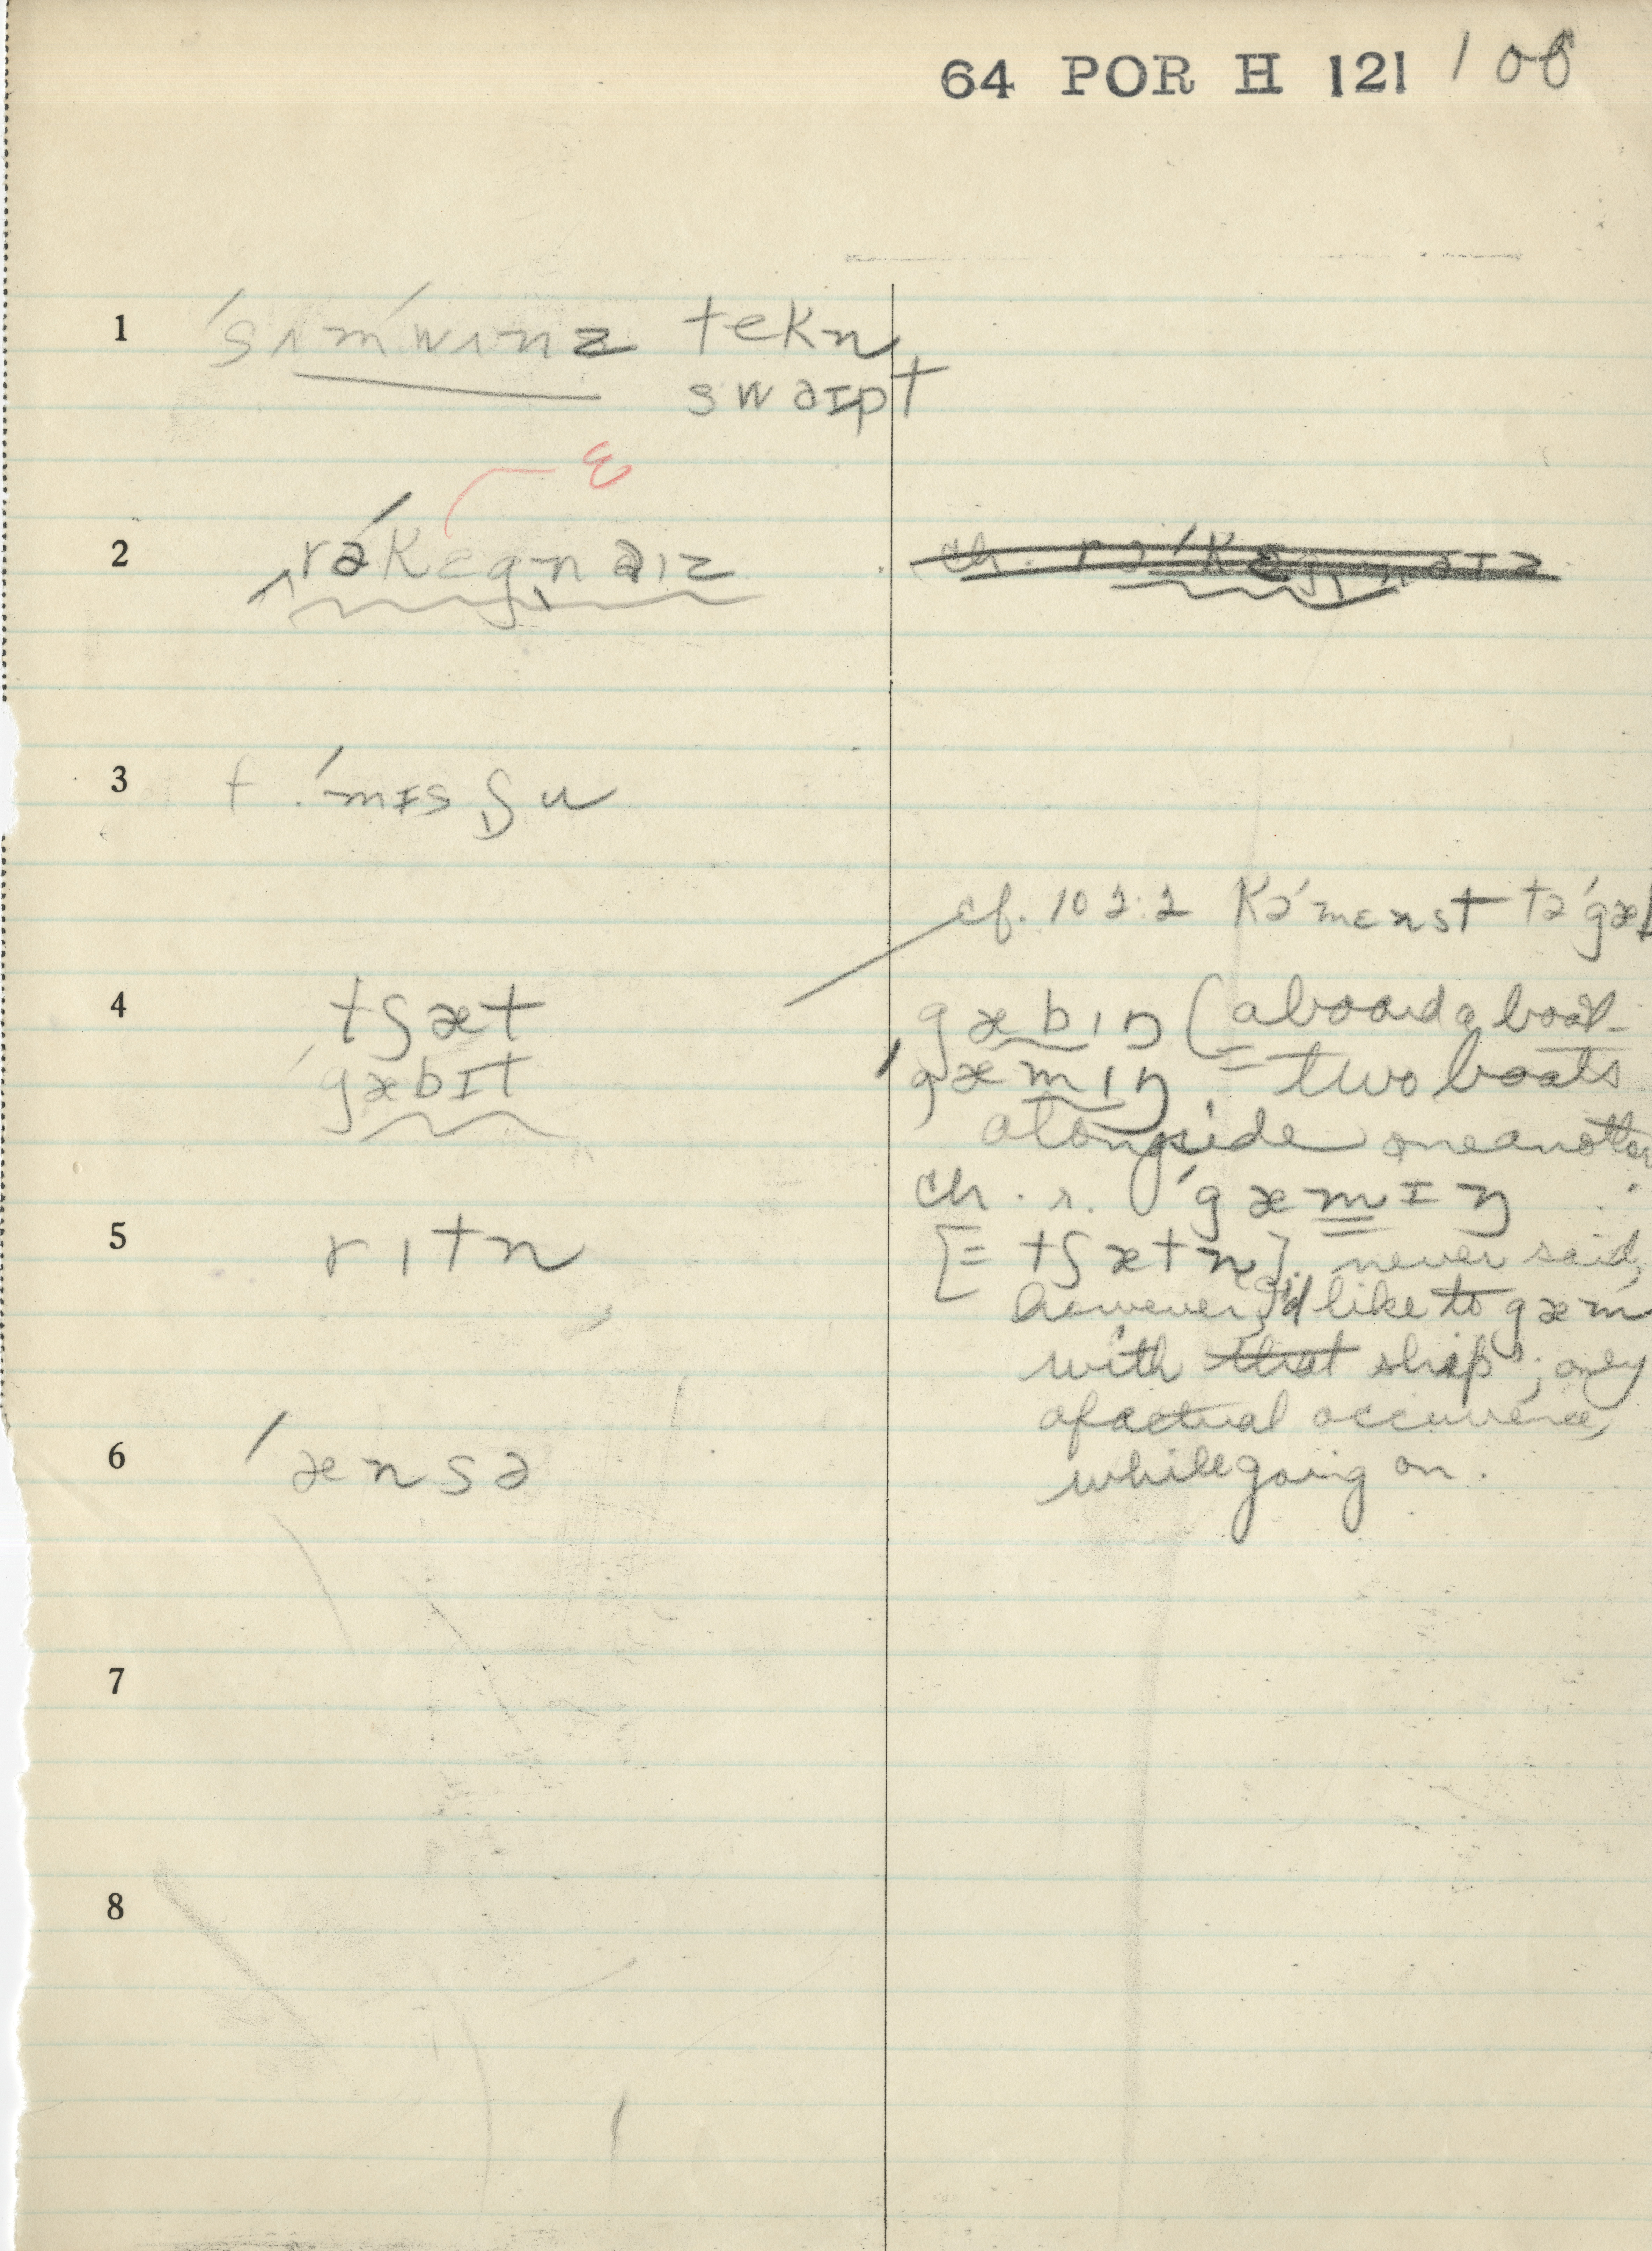 64 POR H 121 106
1 ˈsɪmˈwɪnz tekn
swaɪpt
ɛ
2 rəˈkɛgnaɪz
ch. rəˈkɛgnaɪz
3 f. ˈmɪsʃu
cf. 102.2 Kəˈmɛnst təˈgæb
4 tʃæt
ˈgæbɪt
gæbɪŋ (aboard a boat
ˈgæmɪŋ = two boats
alongside one another
ch. r. ˈgæmɪŋ
5 rɪtn
[= tʃætn]. never said,
however, I'd like to gæm
with that ship; only
of actual occurrence,
while going on.
6 ˈænsə
7
8